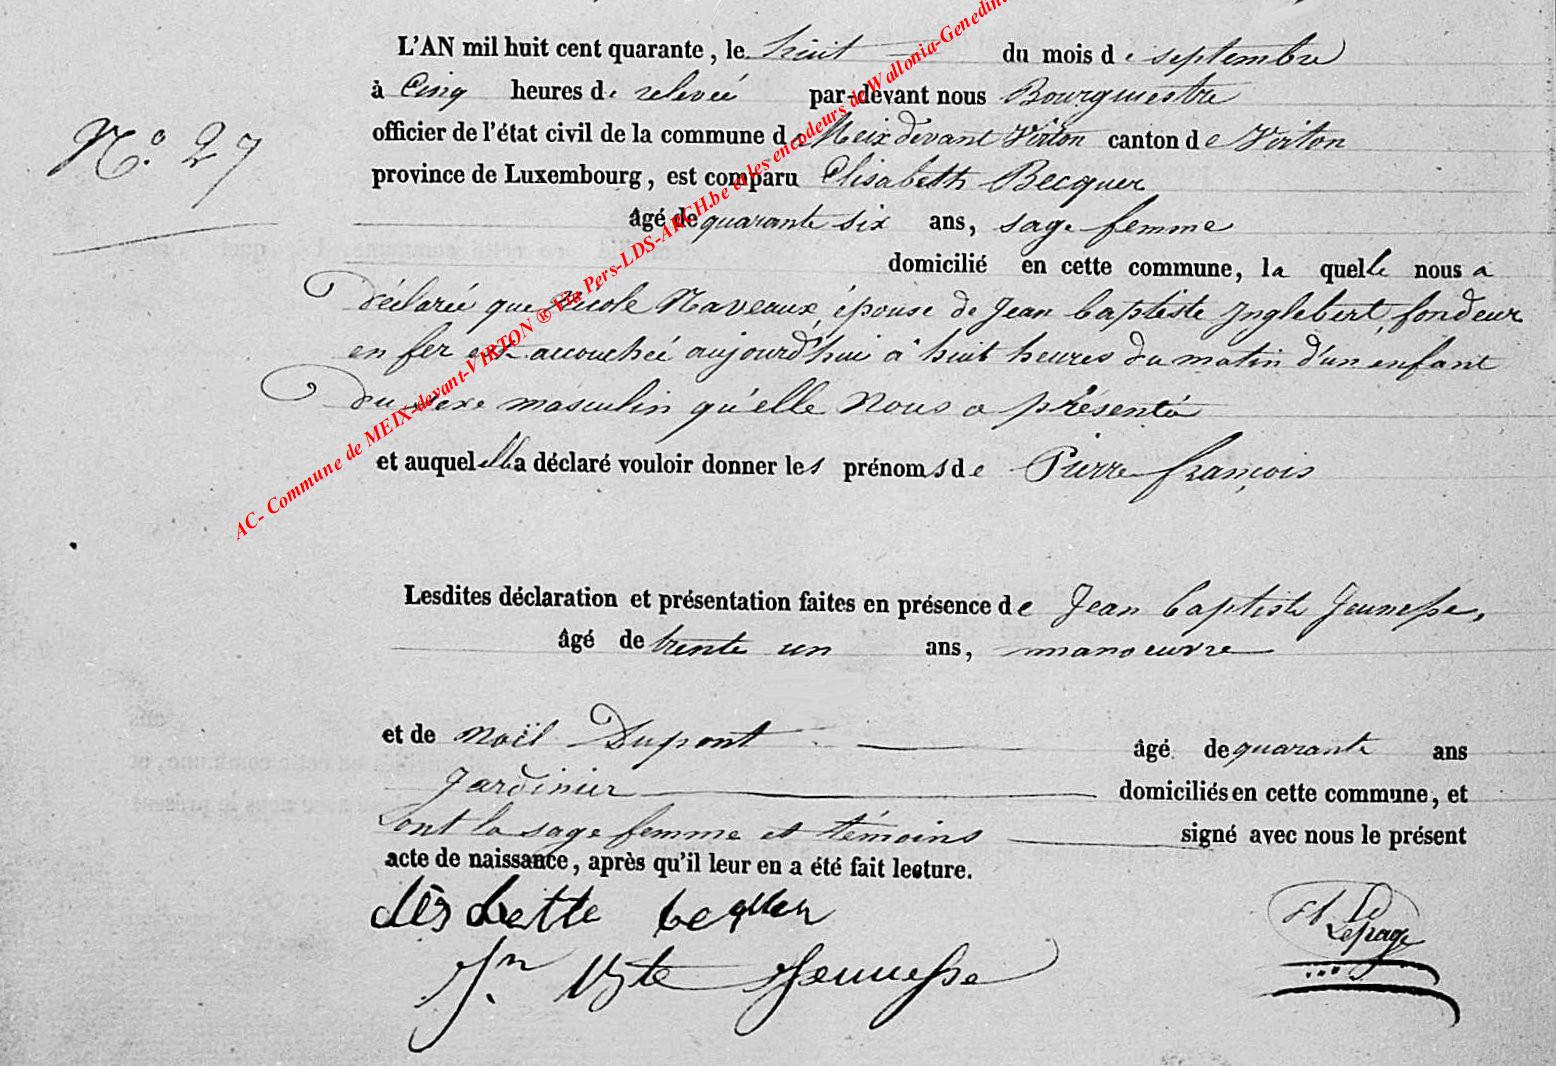 L'AN mil huit cent quarante, le huit du mois de septembre
à Cinq heures de relevée par-devant nous Bourgmestre
N.° 27
officier de l'état civil de la commune de Meix devant Virton canton de Virton
province de Luxembourg, est comparu Elisabeth Becquer
âgé de quarante six ans, sage femme
domicilié en cette commune, la quelle nous a
déclarée que Nicole Naveaux, épouse de Jean Baptiste Inglebert, fondeur
en fer est accouchée aujourd'hui à huit heures du matin d'un enfant
du sexe masculin qu'elle nous a présenté
et auquel elle a déclaré vouloir donner les prénoms de Pierre françois
Lesdites déclaration et présentation faites en présence de Jean Baptiste Jeunesse,
âgé de trente un ans, manoeuvre
et de Noël Dupont âgé de quarante ans
Jardinier domiciliés en cette commune, et
ont la sage femme et témoins signé avec nous le présent
acte de naissance, après qu'il leur en a été fait lecture.
becquer
Lepage
Jn Bte Jeunesse
AC- Commune de MEIX-devant-VIRTON ® Via Pers-LDS-ARCH.be et les encodeurs de Wallonia-Genedin